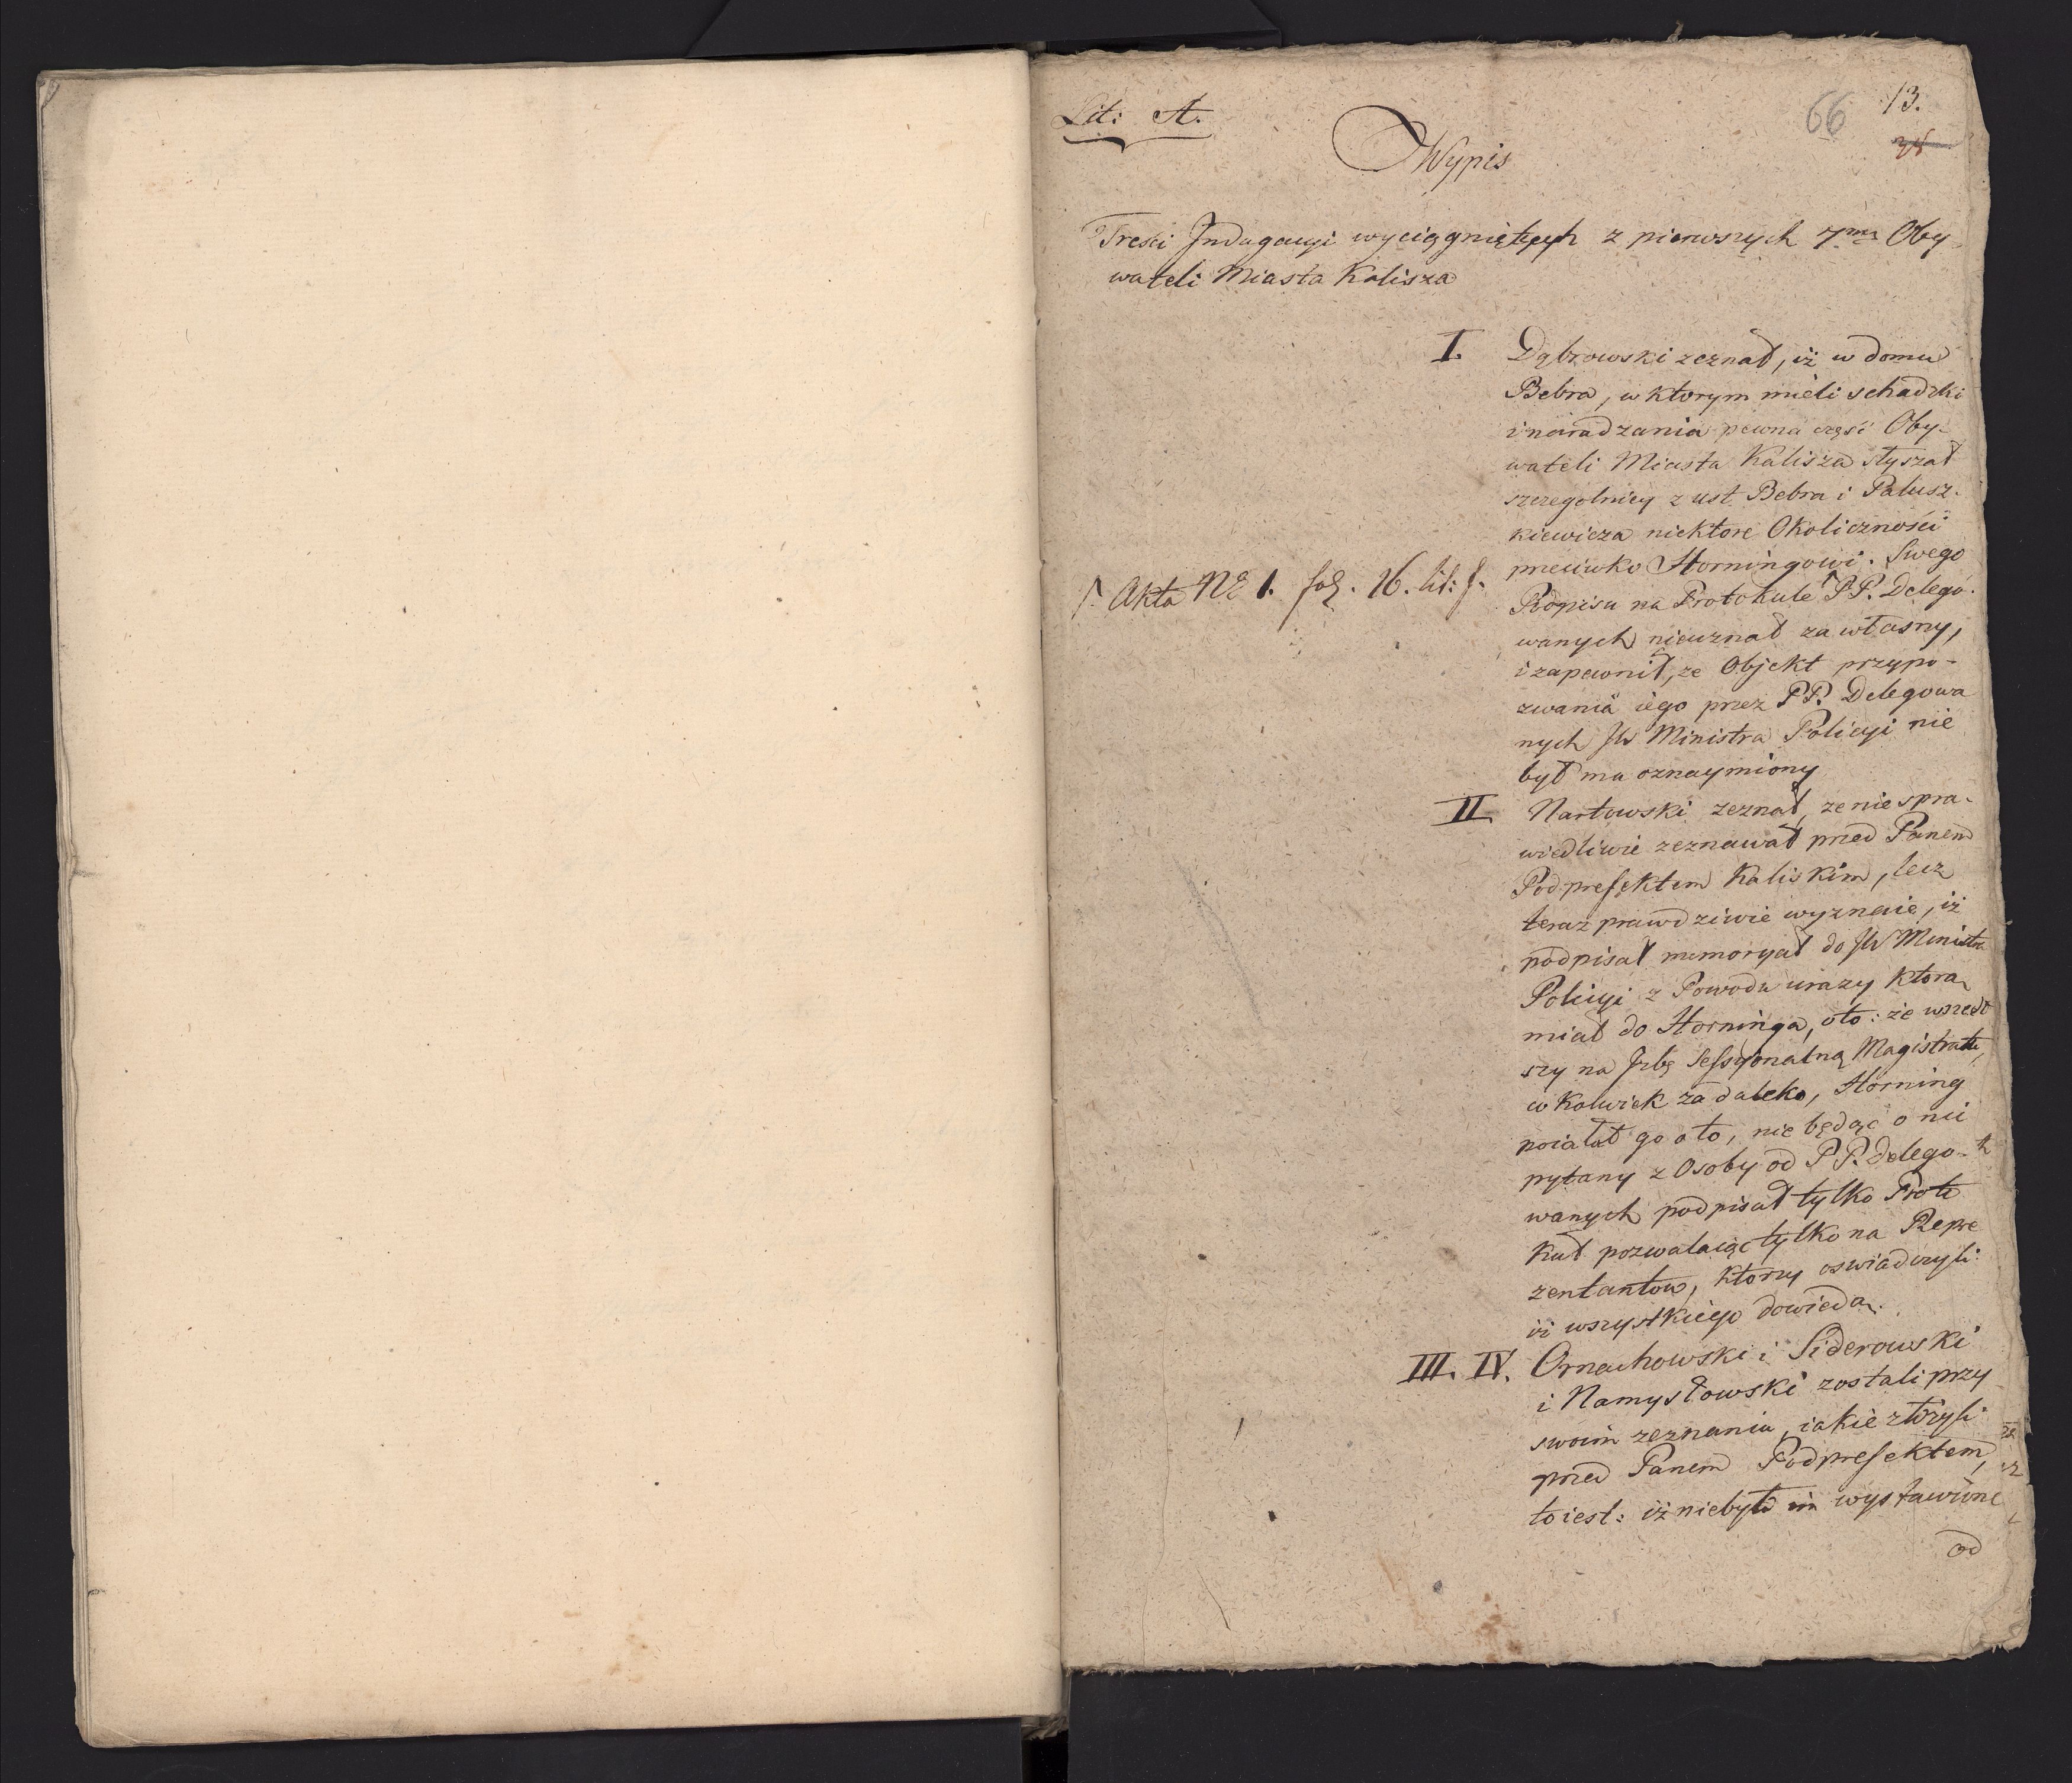 Lit: A.
66 13.
Wypis
Tresci Indagacyi wyciągniętych z pierwszych 7miu Oby
wateli Miasta Kalisza
I. Dąbrowski zeznał, iż w domu
Bebra, w ktorym mieli schadzki
i naradzania pewna część Oby-
wateli Miasta Kalisza słyszał
szczegolniey z ust Bebra i Palusz-
kiewicza niektore Okoliczności
przeciwko Horningowi. Swego
Podpisu na Protokule PP. Delego-
wanych nieuznał za własny,
i zapewnił, ze Objekt przypo-
zwania iego przez PP. Delegowa
nych JW Ministra Policyi nie
był mu oznaymiony
/. Akta No 1. fol. 16. lit: f.
II. Nartowski zeznał, ze nie spra-
wiedliwie zeznawał przed Panem
Podprefektem Kaliskim, lecz
teraz prawdziwie wyznaie, iż
podpisał memoryał do JW Ministra
Policyi z Powodu urazy ktorą
miał do Horninga, oto: że wszedł
szy na Izbę Sessyonalną Magistratu,
w kolwiek za daleko, Horning
połaiał go o to, nie będąc o nic
pytany z Osoby od PP. delego-
wanych podpisał tylko Proto
kuł pozwalaiąc tylko na Repre
zentantow, ktorzy oswiadczyli
iż wszystkiego dowiedą.
III. IV. Ornachowski i Siderowski
i Namysłowski zostali przy
swoim zeznaniu, iakie złożyli
przed Panem Podprefektem,
to iest: iż niebyło im wystawione
od